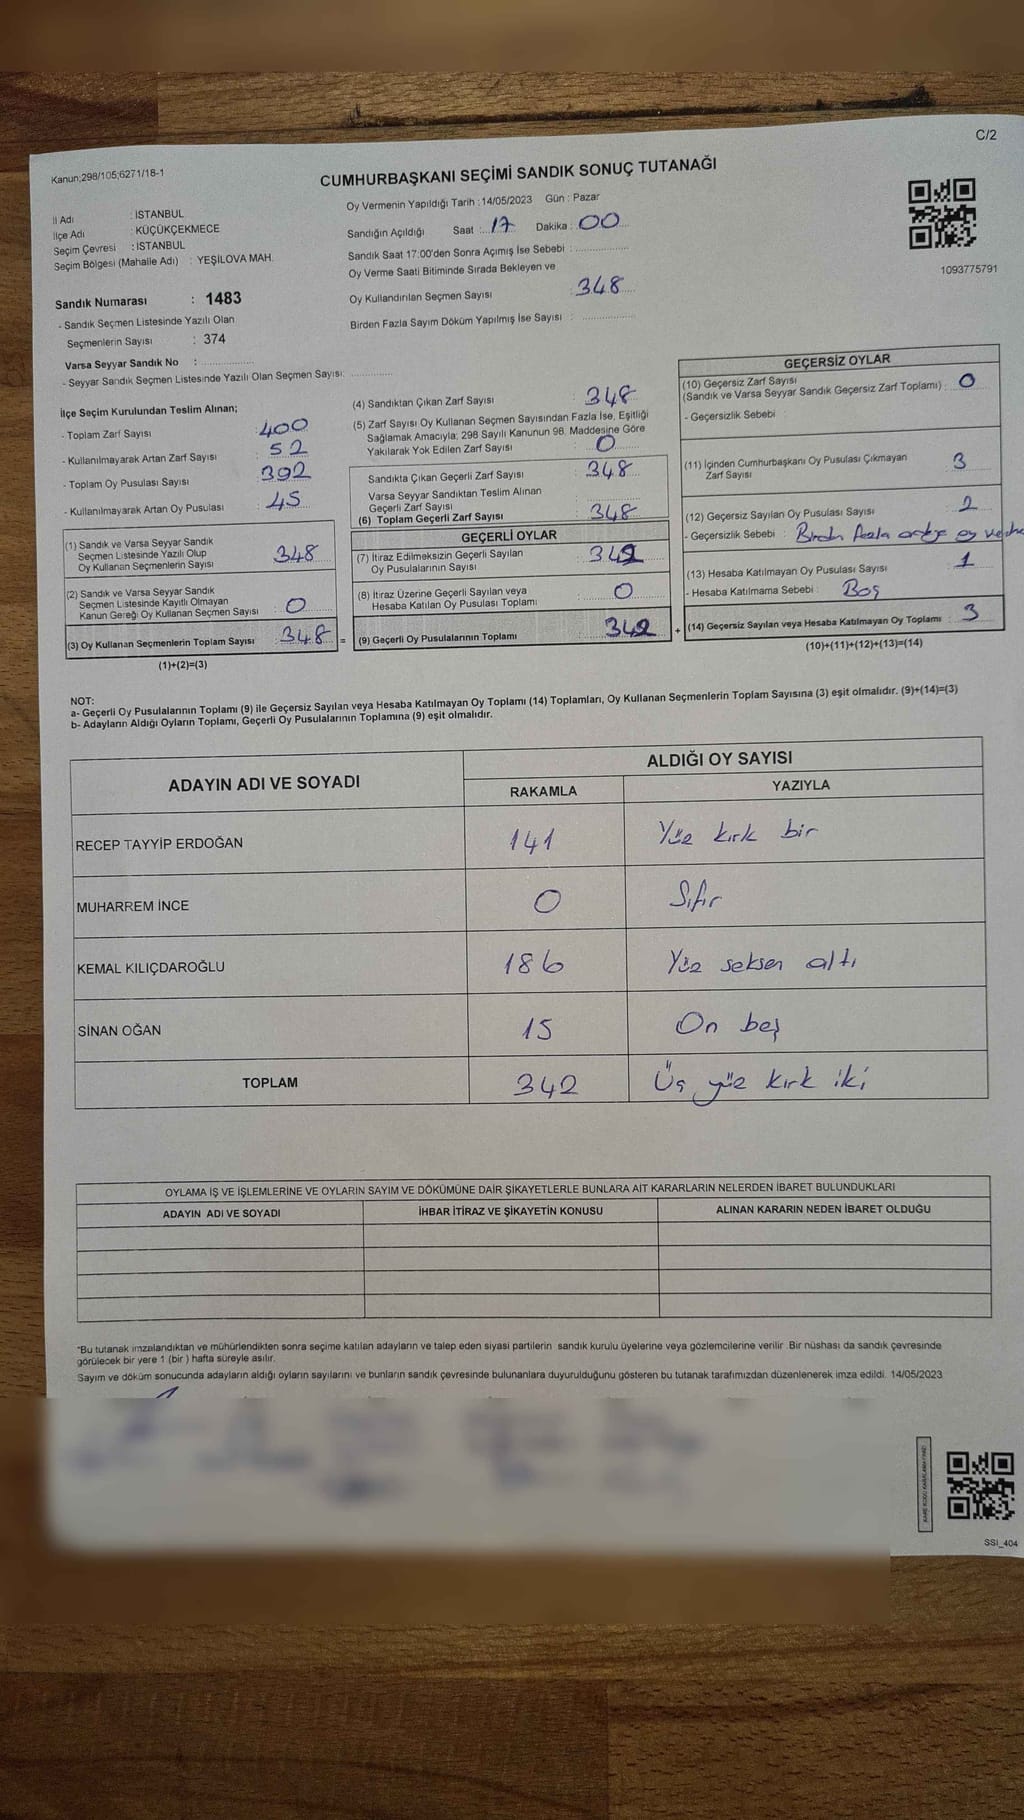 C/2
Kanun;298/105;6271/18-1
CUMHURBAŞKANI SEÇİMİ SANDIK SONUÇ TUTANAĞI
1093775791
İl Adı : İSTANBUL
İlçe Adı : KÜÇÜKÇEKMECE
Seçim Çevresi : İSTANBUL
Seçim Bölgesi (Mahalle Adı) : YEŞİLOVA MAH.
Sandık Numarası : 1483
- Sandık Seçmen Listesinde Yazılı Olan
Seçmenlerin Sayısı : 374
Varsa Seyyar Sandık No :
- Seyyar Sandık Seçmen Listesinde Yazılı Olan Seçmen Sayısı:
Oy Vermenin Yapıldığı Tarih :14/05/2023 Gün : Pazar
Sandığın Açıldığı Saat : 17 Dakika : 00
Sandık Saat 17:00'den Sonra Açımış İse Sebebi :
Oy Verme Saati Bitiminde Sırada Bekleyen ve
Oy Kullandırılan Seçmen Sayısı : 348
Birden Fazla Sayım Döküm Yapılmış İse Sayısı :
İlçe Seçim Kurulundan Teslim Alınan;
- Toplam Zarf Sayısı : 400
- Kullanılmayarak Artan Zarf Sayısı : 52
- Toplam Oy Pusulası Sayısı : 392
- Kullanılmayarak Artan Oy Pusulası : 45
(1) Sandık ve Varsa Seyyar Sandık
Seçmen Listesinde Yazılı Olup
Oy Kullanan Seçmenlerin Sayısı 348
(2) Sandık ve Varsa Seyyar Sandık
Seçmen Listesinde Kayıtlı Olmayan
Kanun Gereği Oy Kullanan Seçmen Sayısı : 0
(3) Oy Kullanan Seçmenlerin Toplam Sayısı : 348 =
(1)+(2)=(3)
(4) Sandıktan Çıkan Zarf Sayısı : 348
(5) Zarf Sayısı Oy Kullanan Seçmen Sayısından Fazla İse, Eşitliği
Sağlamak Amacıyla; 298 Sayılı Kanunun 98. Maddesine Göre
Yakılarak Yok Edilen Zarf Sayısı : 0
Sandıkta Çıkan Geçerli Zarf Sayısı : 348
Varsa Seyyar Sandıktan Teslim Alınan
Geçerli Zarf Sayısı
(6) Toplam Geçerli Zarf Sayısı : 348
GEÇERLİ OYLAR
(7) İtiraz Edilmeksizin Geçerli Sayılan
Oy Pusulalarının Sayısı : 342
(8) İtiraz Üzerine Geçerli Sayılan veya
Hesaba Katılan Oy Pusulası Toplamı : 0
(9) Geçerli Oy Pusulalarının Toplamı : 342 +
GEÇERSİZ OYLAR
(10) Geçersiz Zarf Sayısı
(Sandık ve Varsa Seyyar Sandık Geçersiz Zarf Toplamı) : 0
- Geçersizlik Sebebi :
(11) İçinden Cumhurbaşkanı Oy Pusulası Çıkmayan
Zarf Sayısı 3
(12) Geçersiz Sayılan Oy Pusulası Sayısı : 2
- Geçersizlik Sebebi : Birden fazla oy
(13) Hesaba Katılmayan Oy Pusulası Sayısı : 1
- Hesaba Katılmama Sebebi : Boş
(14) Geçersiz Sayılan veya Hesaba Katılmayan Oy Toplamı : 3
(10)+(11)+(12)+(13)=(14)
NOT:
a- Geçerli Oy Pusulalarının Toplamı (9) ile Geçersiz Sayılan veya Hesaba Katılmayan Oy Toplamı (14) Toplamları, Oy Kullanan Seçmenlerin Toplam Sayısına (3) eşit olmalıdır. (9)+(14)=(3)
b- Adayların Aldığı Oyların Toplamı, Geçerli Oy Pusulalarının Toplamına (9) eşit olmalıdır.
ADAYIN ADI VE SOYADI ALDIĞI OY SAYISI
RAKAMLA YAZIYLA
RECEP TAYYİP ERDOĞAN 141 Yüz kırk bir
MUHARREM İNCE 0 Sıfır
KEMAL KILIÇDAROĞLU 186 Yüz seksen altı
SİNAN OĞAN 15 On beş
TOPLAM 342 Üç yüz kırk iki
OYLAMA İŞ VE İŞLEMLERİNE VE OYLARIN SAYIM VE DÖKÜMÜNE DAİR ŞİKAYETLERLE BUNLARA AİT KARARLARIN NELERDEN İBARET BULUNDUKLARI
ADAYIN ADI VE SOYADI İHBAR İTİRAZ VE ŞİKAYETİN KONUSU ALINAN KARARIN NEDEN İBARET OLDUĞU
*Bu tutanak imzalandıktan ve mühürlendikten sonra seçime katılan adayların ve talep eden siyasi partilerin sandık kurulu üyelerine veya gözlemcilerine verilir. Bir nüshası da sandık çevresinde
görülecek bir yere 1 (bir) hafta süreyle asılır.
Sayım ve döküm sonucunda adayların aldığı oyların sayılarını ve bunların sandık çevresinde bulunanlara duyurulduğunu gösteren bu tutanak tarafımızdan düzenlenerek imza edildi. 14/05/2023
SSI_404